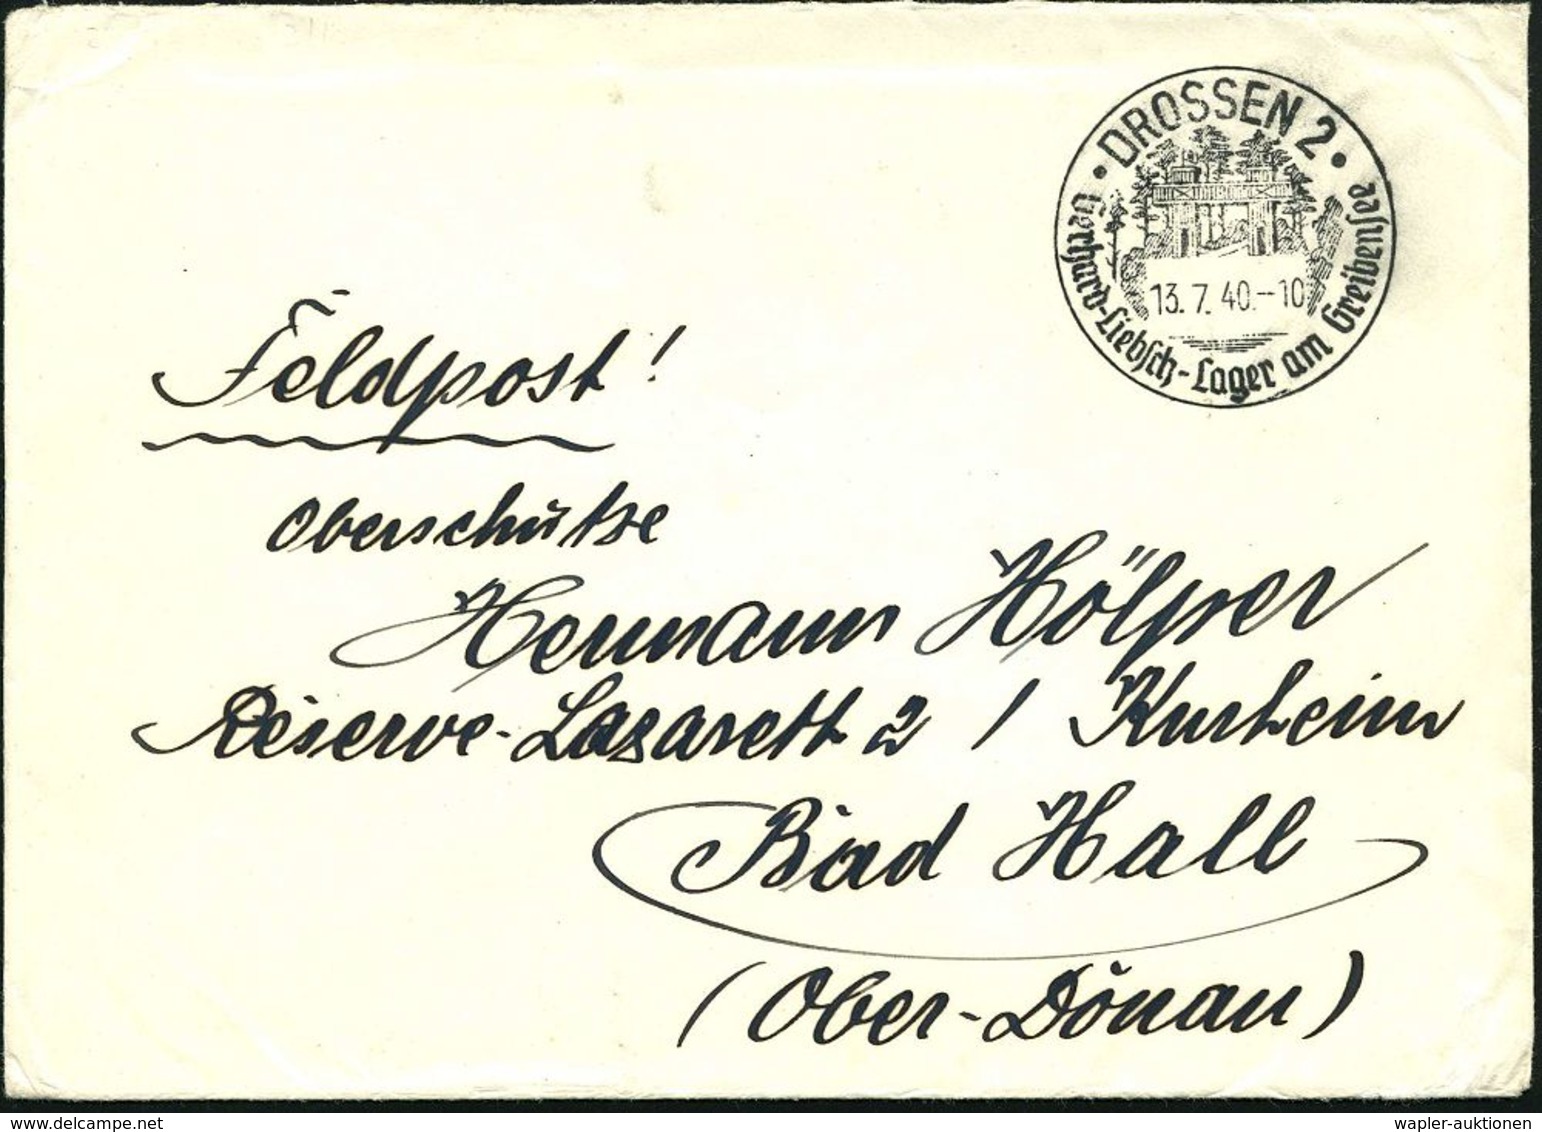 DROSSEN 2
Gerhard-Liebsch-Lager am Greibensee
13.7.40.-10
Feldpost!
Oberschütze
Hermann Hölper
Reserve-Lazarett 2 / Kurheim
Bad Hall
(Ober-Donau)
wapler-auktionen